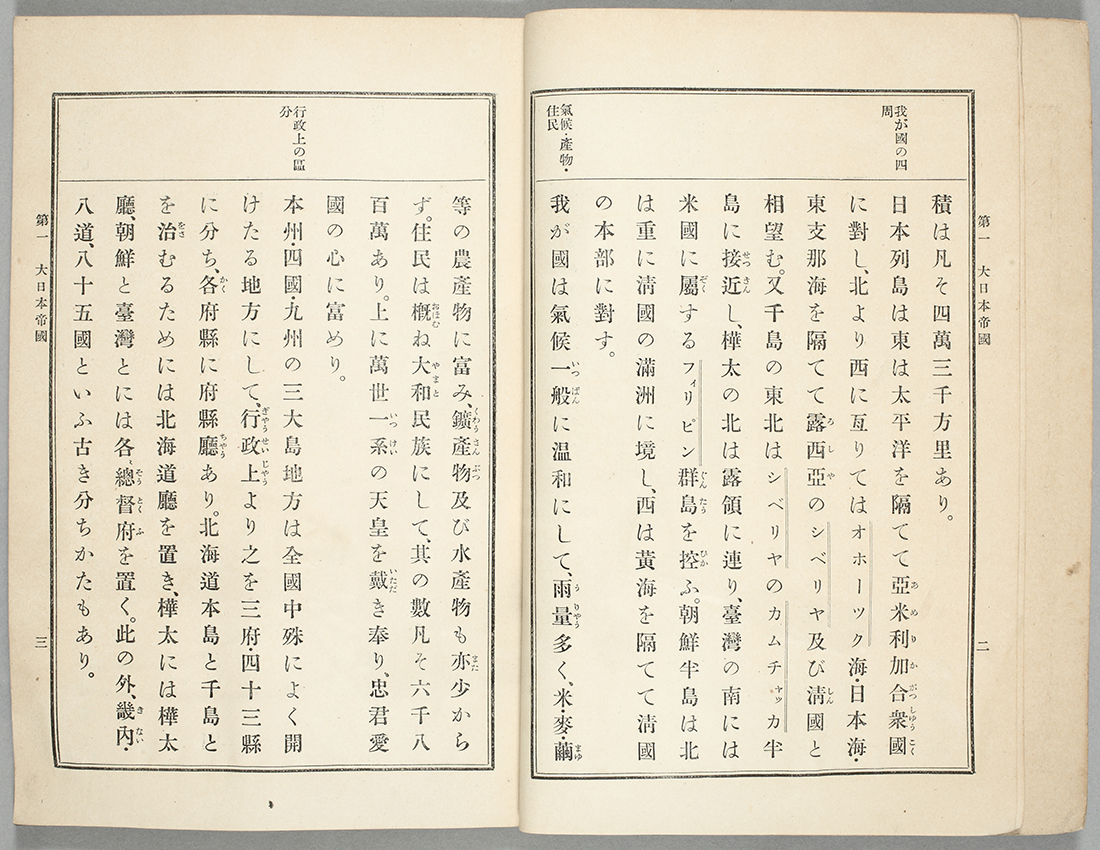 第一 大日本帝國
二
我が國の四
周
氣候・産物・
住民
積は凡そ四萬三千方里あり。
日本列島は東は太平洋を隔てて亞米利加合衆國
に對し、北より西に亙りてはオホーツク海・日本海・
東支那海を隔てて露西亞のシベリヤ及び淸國と
相望む。又千島の東北はシベリヤのカムチャッカ半
島に接近し、樺太の北は露領に連り、臺灣の南には
米國に屬するフィリピン群島を控ふ。朝鮮半島は北
は重に淸國の滿洲に境し、西は黃海を隔てて淸國
の本部に對す。
我が國は氣候一般に温和にして、雨量多く、米・麥・繭
行政上の區
分
等の農產物に富み、鑛產物及び水產物も亦少から
ず。住民は槪ね大和民族にして、其の數凡そ六千八
百萬あり。上に萬世一系の天皇を戴き奉り、忠君愛
國の心に富めり。
本州・四國・九州の三大島地方は全國中殊によく開
けたる地方にして、行政上より之を三府・四十三縣
に分ち、各府縣に府縣廳あり。北海道本島と千島と
を治むるためには北海道廳を置き、樺太には樺太
廳、朝鮮と臺灣とには各〻總督府を置く。此の外、畿內・
八道、八十五國といふ古き分ちかたもあり。
第一 大日本帝國
三